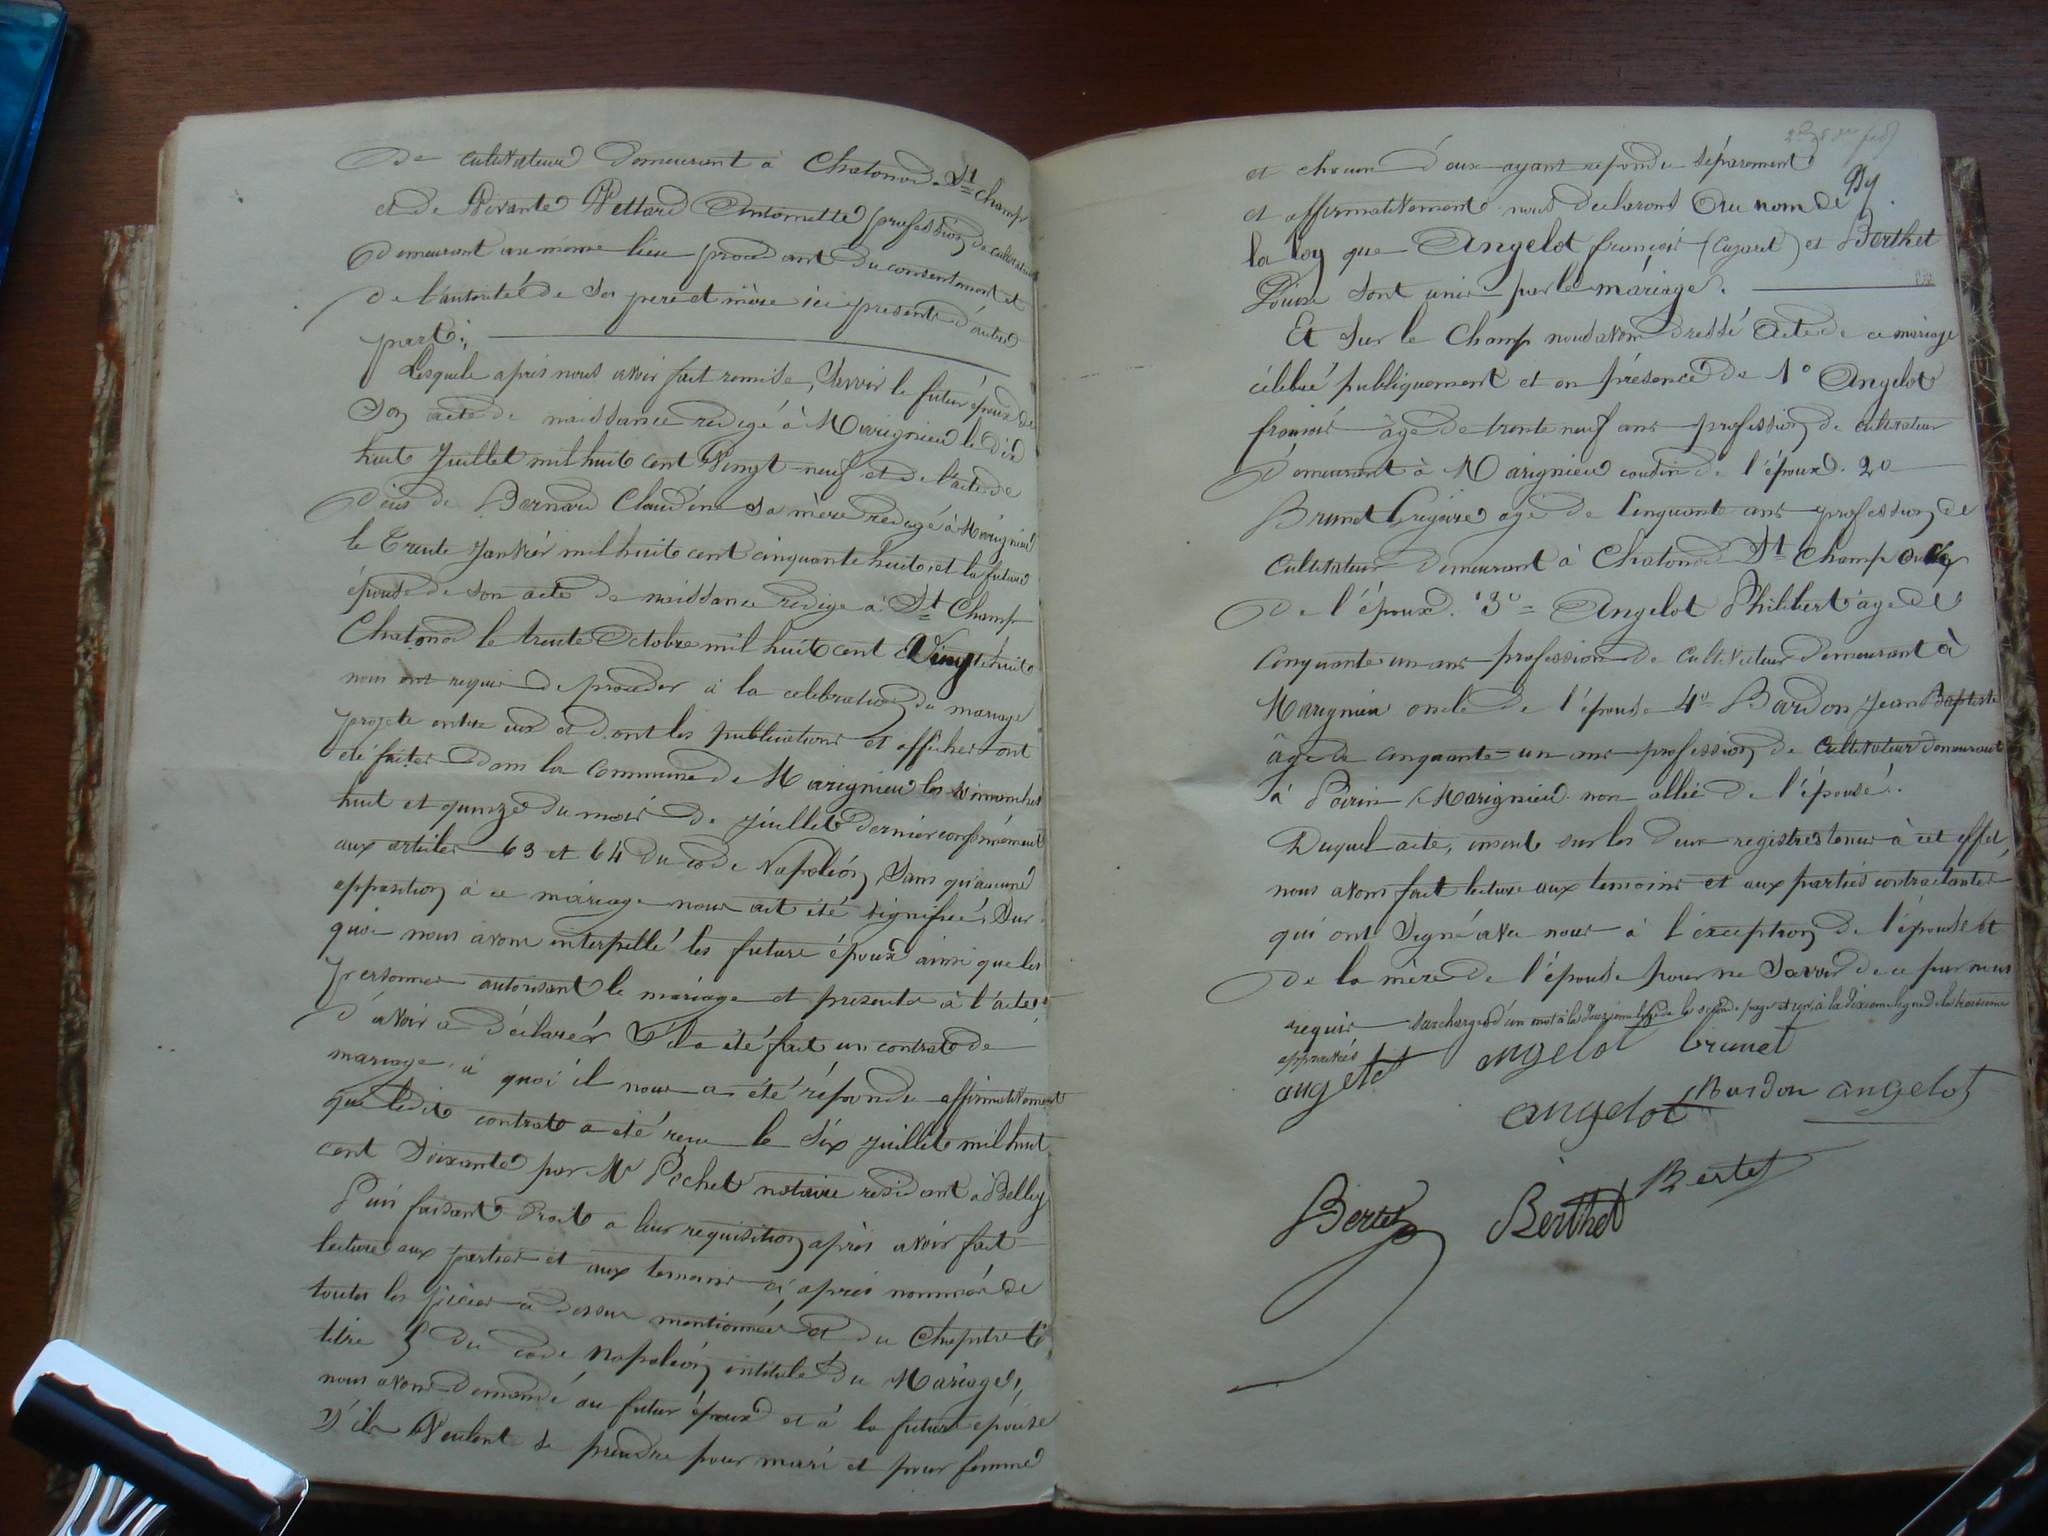 de cultivateur demeurant à Chatonod St champ
et de Vivante Vettard Antoinette profession de cultivateur
demeurant au même lieu procedant du consentement et
de l'autorité de son pere et mère ici present d'autre
part;
Lesquels après nous avoir fait remise, savoir le futur époux de
son acte de naissance redigé à Marignieu le dix
huit Juillet mil huit cent vingt-neuf et de l'acte de
décès de Bernard Claudine sa mère redigé à Marignieu
le trente Janvier mil huit cent cinquante huit, et la future
épouse de son acte de naissance redigé à St Champ
Chatonod le trente Octobre mil huit cent Vingt huit
nous ont requis de proceder à la celebration du mariage
projeté entre eux et dont les publications et affiches ont
été faites dans la commune de Marignieu les dimanches
huit et quinze du mois de juillet dernier conformément
aux articles 63 et 64 du code Napoléon, sans qu'aucune
opposition à ce mariage nous ait été signifiée, Sur
quoi nous avons interpellé les futurs époux ainsi que les
personnes autorisant le mariage et presentes à l'acte,
d'avoir a déclarér s'il a été fait un contrat de
mariage, à quoi il nous a été répondu affirmativement
que ledit contrat a été reçu le six juillet mil huit
cent soixante par Me Pochet notaire residant à Belley
Puis faisant droit a leur requisition, après avoir fait
lecture aux parties et aux temoins ci après nommés de
toutes les pièces ci dessus mentionnées et du Chapitre 6
titre 5 du code Napoléon, intitulé du Mariage,
nous avons demandé au futur époux et à la future epouse
s'ils Veulent se prendre pour mari et pour femme
et chacun d'eux ayant repondu séparement
et affirmativement nous declarons Au nom de
la loy que Angelot françois (Cazaret) et Berthet
Louise sont unis par le mariage.
Et sur le Champ nous avons dressé Acte de ce mariage
célébré publiquement et en présence de 1° Angelot
françois âgé de trente neuf ans profession de cultivateur
demeurant à Marignieu cousin de l'époux. 2°
Brunet Grégoire agé de Cinquante ans profession de
cultivateur demeurant à Chatonod St Champ
de l'époux. 3° Angelot Philibert âgé de
Cinquante un ans profession de cultivateur demeurant à
Marignieu oncle de l'épouse 4° Bardon Jean Baptiste
âgé de cinquante-un ans profession de Cultivateur demeurant
à Poirin (Marignieu non allié de l'épousé.
Duquel acte, inscrit sur les deux registres tenus à cet effet,
nous avons fait lecture aux temoins et aux parties contractantes
qui ont signé avec nous à l'exception de l'épouse et
de la mère de l'épouse pour ne savoir de ce par nous
requis surcharges d'un mot à la douzieme ligne de la seconde page et un à la dixieme ligne de la troisieme
approuvés
angelot angelot brunet
angelot Bardon angelot
Bertet Berthet Bertet